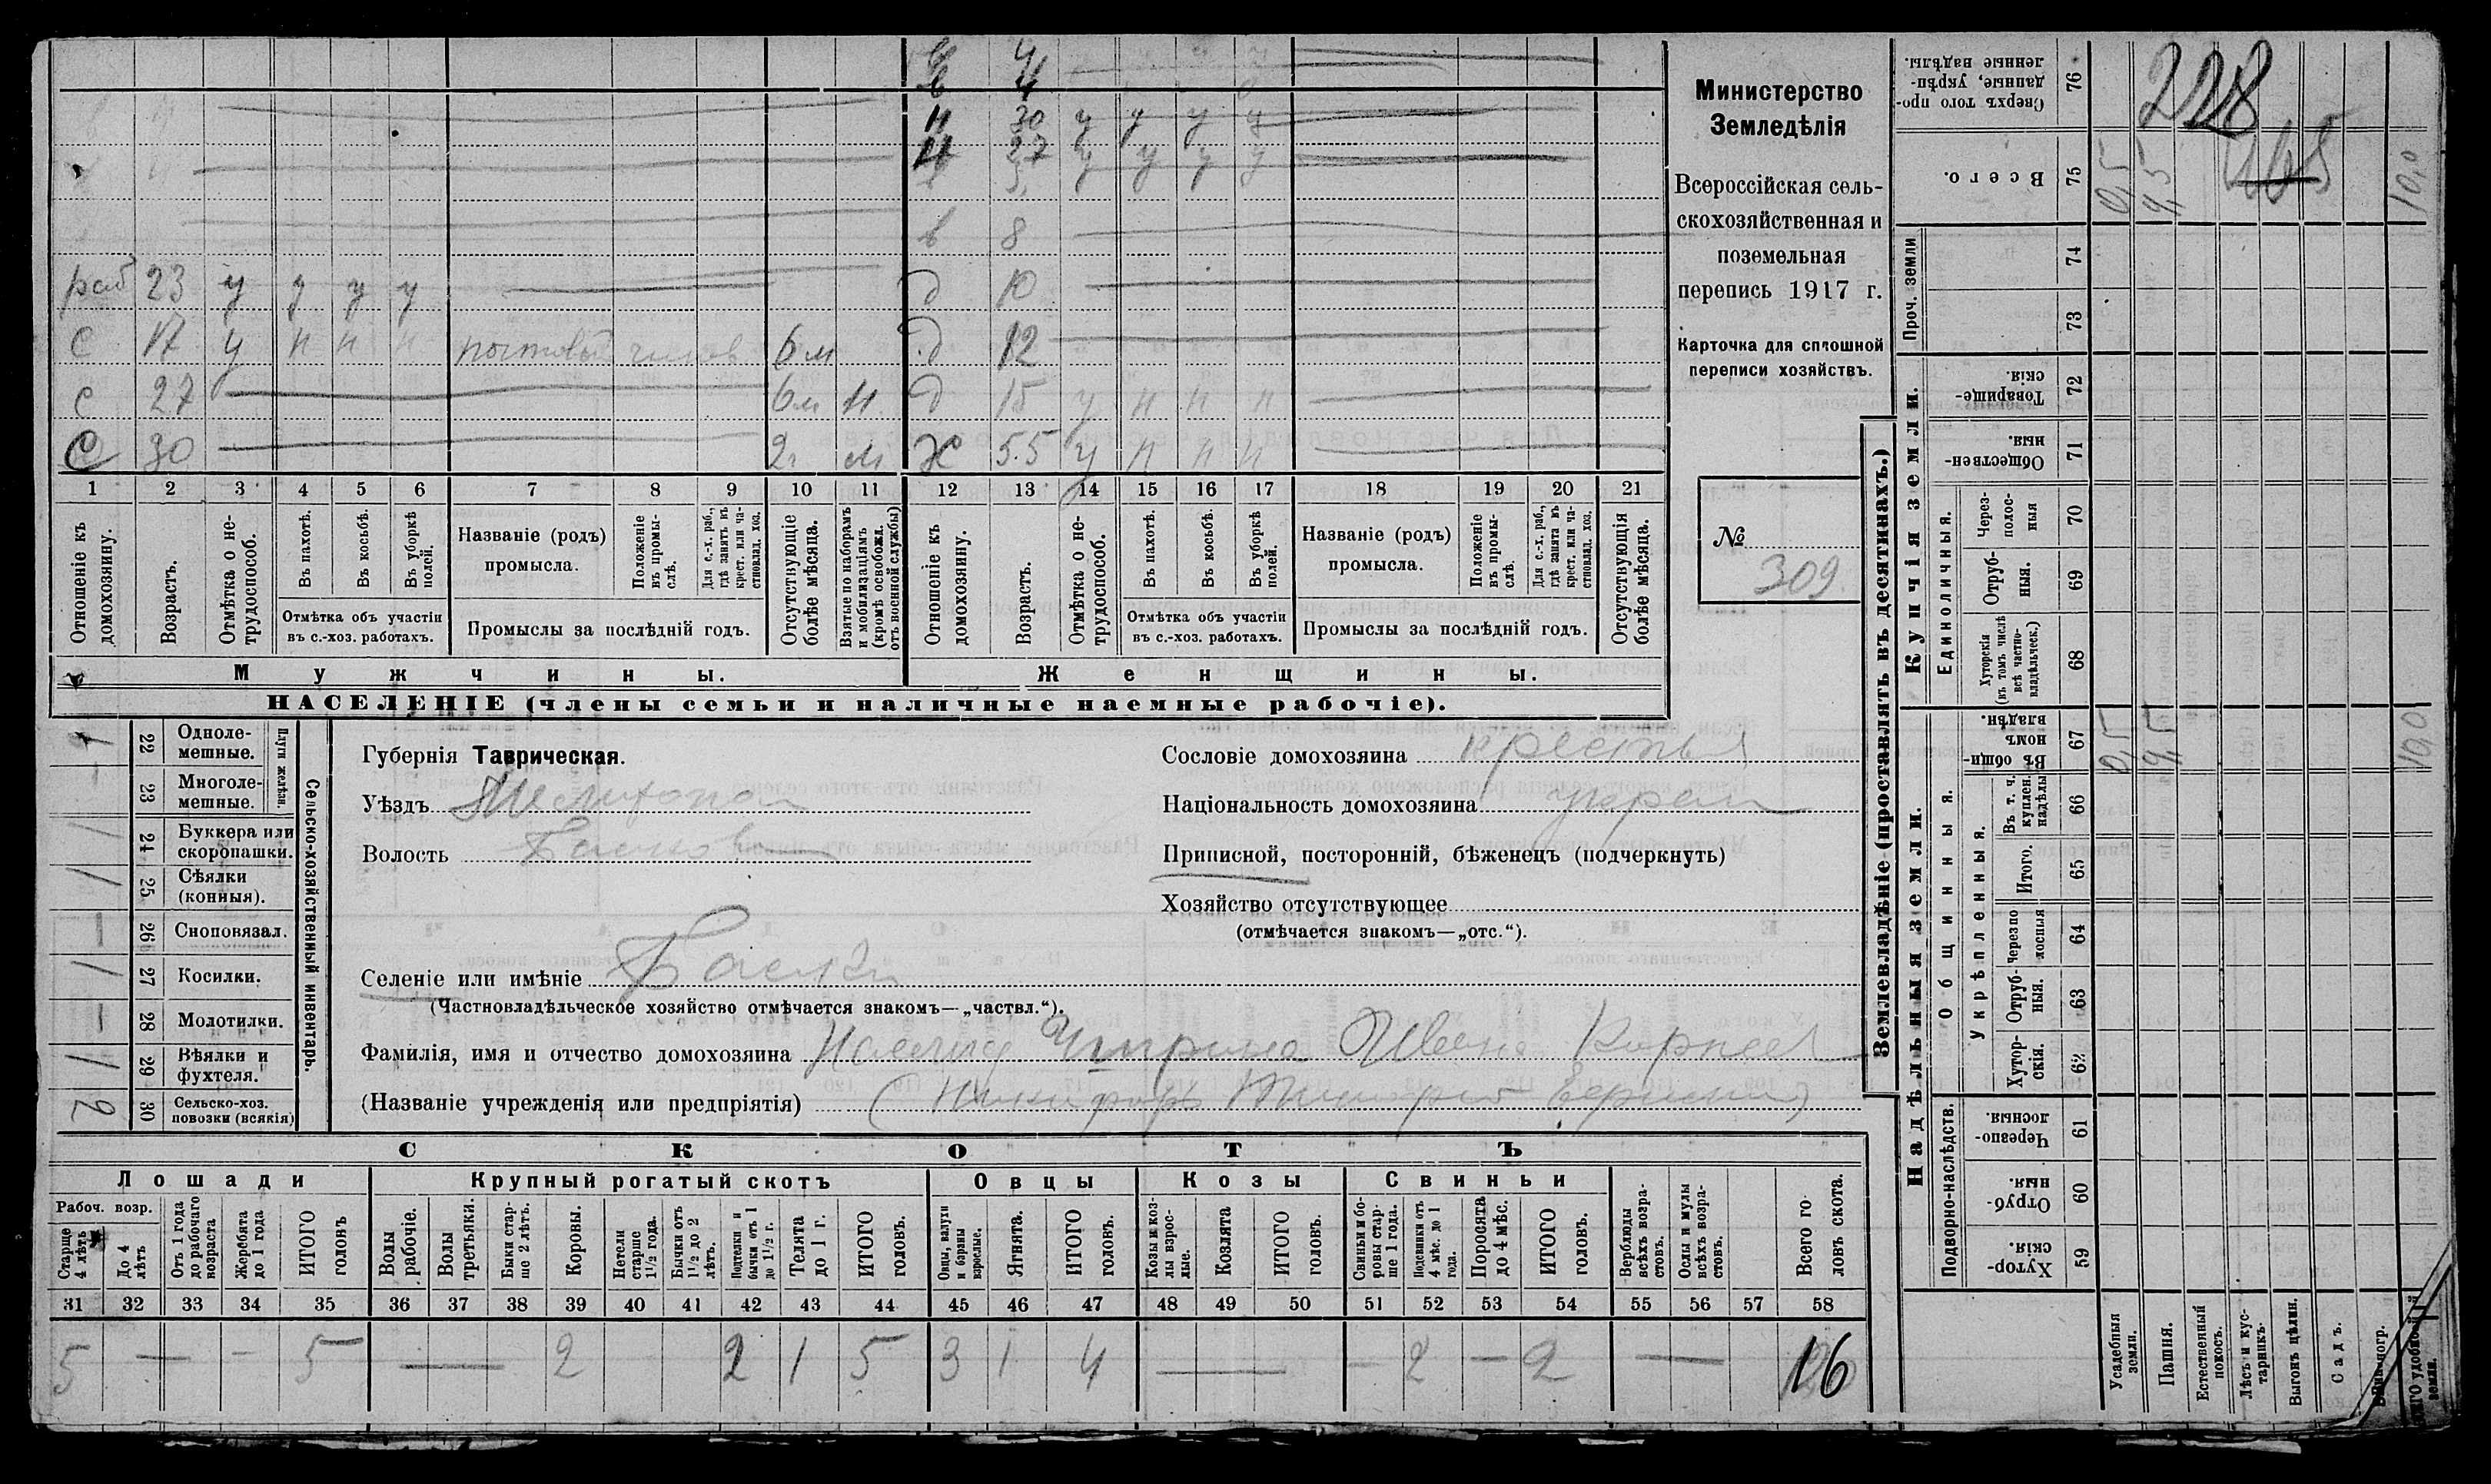 в 4
н 30 у у у у
н 27 у у у у
в 8
раб 23 у у у у д 10
с 17 у н н н 6 м д 12
с 27 6 м н д 15 у н н н
с 30 2 г м ж 55 у н н н
1 2 3 4 5 6 7 8 9 10 11 12 13 14 15 16 17 18 19 20 21
Отношеніе къ домохозяину.
Возрастъ.
Отмѣтка о не-трудоспособ.
Въ пахотѣ.
Въ косьбѣ.
Въ уборкѣ полей.
Отмѣтка объ участіи въ с.-хоз. работахъ.
Названіе (родъ) промысла.
Положеніе въ промы-слѣ.
Для с.-х. раб., гдѣ занятъ въ крест. или ча-стновлад. хоз.
Промыслы за послѣдній годъ.
Отсутствующіе болѣе мѣсяца.
Взятые по наборамъ и мобилизаціямъ (кромѣ освобожд. отъ военной службы)
Мужчины.
Отношеніе къ домохозяину.
Возрастъ.
Отмѣтка о не-трудоспособ.
Въ пахотѣ.
Въ косьбѣ.
Въ уборкѣ полей.
Отмѣтка объ участіи въ с.-хоз. работахъ.
Названіе (родъ) промысла.
Положеніе въ промы-слѣ.
Для с.-х. раб., гдѣ занята въ крест. или ча-стновлад. хоз.
Промыслы за послѣдній годъ.
Отсутствующія болѣе мѣсяца.
Женщины.
НАСЕЛЕНІЕ (члены семьи и наличные наемные рабочіе).
Министерство
Земледѣлія
Всероссійская сель-
скохозяйственная и
поземельная
перепись 1917 г.
Карточка для сплошной
переписи хозяйствъ.
№ 309.
Сельско-хозяйственный инвентарь.
Плуги желѣзн.
22 Одноле-мешные. 1
23 Многоле-мешные. –
24 Буккера или скоропашки. 1
25 Сѣялки (конныя). 1
26 Сноповязал. –
27 Косилки. 1
28 Молотилки. –
29 Вѣялки и фухтеля. 1
30 Сельско-хоз. повозки (всякія) 2
Губернія Таврическая.
Уѣздъ Мелитопол
Волость
Селеніе или имѣніе
(Частновладѣльческое хозяйство отмѣчается знакомъ—„частвл.“).
Фамилія, имя и отчество домохозяина
(Названіе учрежденія или предпріятія)
Сословіе домохозяина крестья
Національность домохозяина украи
Приписной, посторонній, бѣженецъ (подчеркнуть)
Хозяйство отсутствующее
(отмѣчается знакомъ—„отс.“).
СКОТЪ
Лошади Крупный рогатый скотъ Овцы Козы Свиньи
Рабоч. возр.
Старше 4 лѣтъ
До 4 лѣтъ
Отъ 1 года до рабочаго возраста
Жеребята до 1 года
ИТОГО головъ
Волы рабочіе.
Волы третьяки.
Быки стар-ше 2 лѣтъ.
Коровы.
Нетели старше 1½ года.
Бычки отъ 1½ до 2 лѣтъ.
Подтелки и бычки отъ 1 до 1½ г.
Телята до 1 г.
ИТОГО головъ.
Овцы, валухи и бараны взрослые.
Ягнята.
ИТОГО головъ.
Козы и коз-лы взрос-лые.
Козлята
ИТОГО головъ.
Свиньи и бо-ровы стар-ше 1 года.
Подсвинки отъ 4 мѣс. до 1 года.
Поросята до 4 мѣс.
ИТОГО головъ.
Верблюды всѣхъ возра-стовъ.
Ослы и мулы всѣхъ возра-стовъ.
Всего го-ловъ скота.
31 32 33 34 35 36 37 38 39 40 41 42 43 44 45 46 47 48 49 50 51 52 53 54 55 56 57 58
5 — – 5 — 2 2 1 5 3 1 4 — – 2 – 2 — 16
Землевладѣніе (проставлять въ десятинахъ.)
Надѣльныя земли.
Подворно-наслѣдств.
Хутор-скія. 59
Отруб-ныя. 60
Черезпо-лосныя. 61
Общинныя.
Укрѣпленныя.
Хутор-скія. 62
Отруб-ныя. 63
Черезпо лосныя 64
Итого. 65
Въ т. ч. куплен. надѣлы 66
Въ общи-номъ владѣн. 67 0,5 9,5 10,0
Купчія земли.
Единоличныя.
Хуторскія (въ томъ числѣ всѣ частно-владѣльческ.) 68
Отруб-ныя. 69
Через-полос-ныя 70
Обществен-ныя. 71
Товарище-скія. 72
Проч. земли
73
74
Всего. 75 0,5 9,5 10,0
Сверхъ того про-данные, укрѣп-ленные надѣлы. 76
228
Усадебныя земли.
Пашня.
Естественный покосъ.
Лѣсъ и кус-тарникъ.
Выгонъ цѣлин.
Садъ.